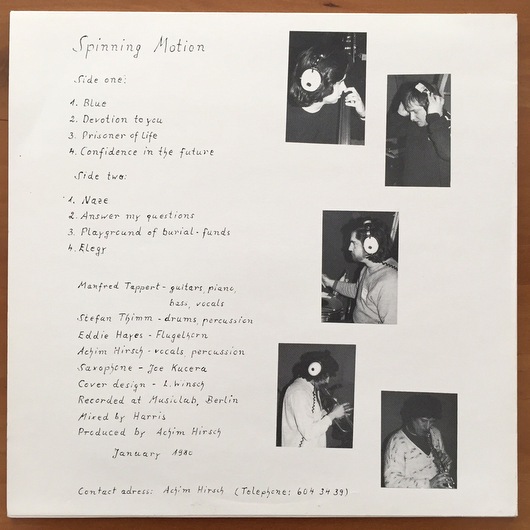 Spinning Motion
Side one:
1. Blue
2. Devotion to you
3. Prisoner of life
4. Confidence in the future
Side two:
1. Naze
2. Answer my questions
3. Playground of burial-funds
4. Elegy
Manfred Tappert - guitars, piano,
bass, vocals
Stefan Thimm - drums, percussion
Eddie Hayes - Flugelhorn
Achim Hirsch - vocals, percussion
Saxophone - Joe Kucera
Cover design - L. Winsch
Recorded at Musiclub, Berlin
Mixed by Harris
Produced by Achim Hirsch
January 1980
Contact adress: Achim Hirsch (Telephone: 604 34 39)